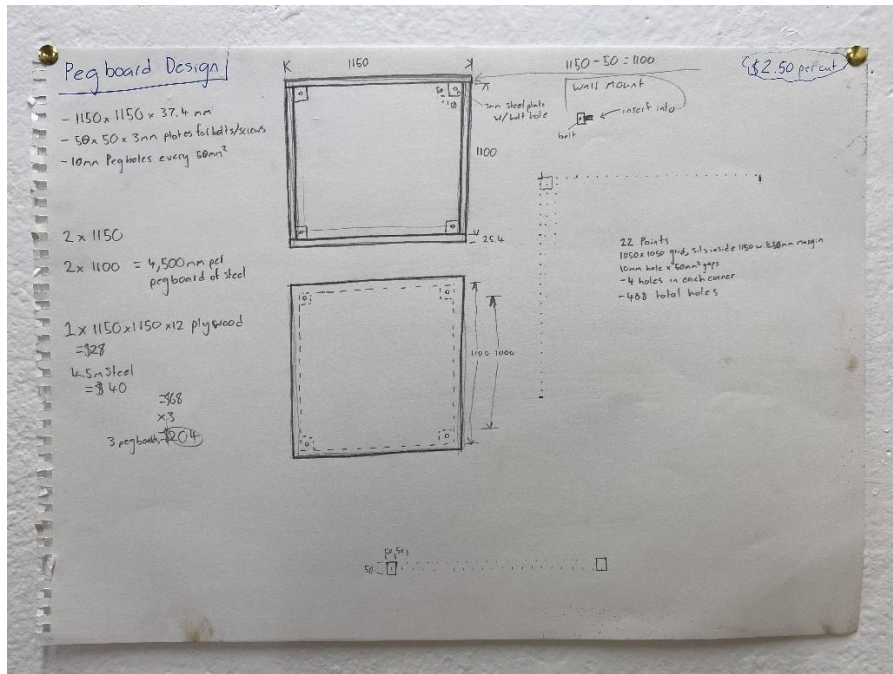 Pegboard Design
- 1150 x 1150 x 37.4 mm
- 50 x 50 x 3mm plates for bolts/screws
- 10mm Pegholes every 50mm²
2 x 1150
2 x 1100 = 4,500mm per
pegboard of steel
1 x 1150 x 1150 x 12 plywood
= $28
4.5m Steel
= $40
= $68
x 3
3 pegboards = $204
1150
50
50
3mm steel plate
w/ bolt hole
1100
25.4
1100
1000
1150 - 50 = 1100
Wall Mount
insert into
bolt
$2.50 per cut
22 Points
1050 x 1050 grid, sits inside 1150 with 50mm margin
10mm hole x 50mm² gaps
- 4 holes in each corner
- 468 total holes
50
50
50